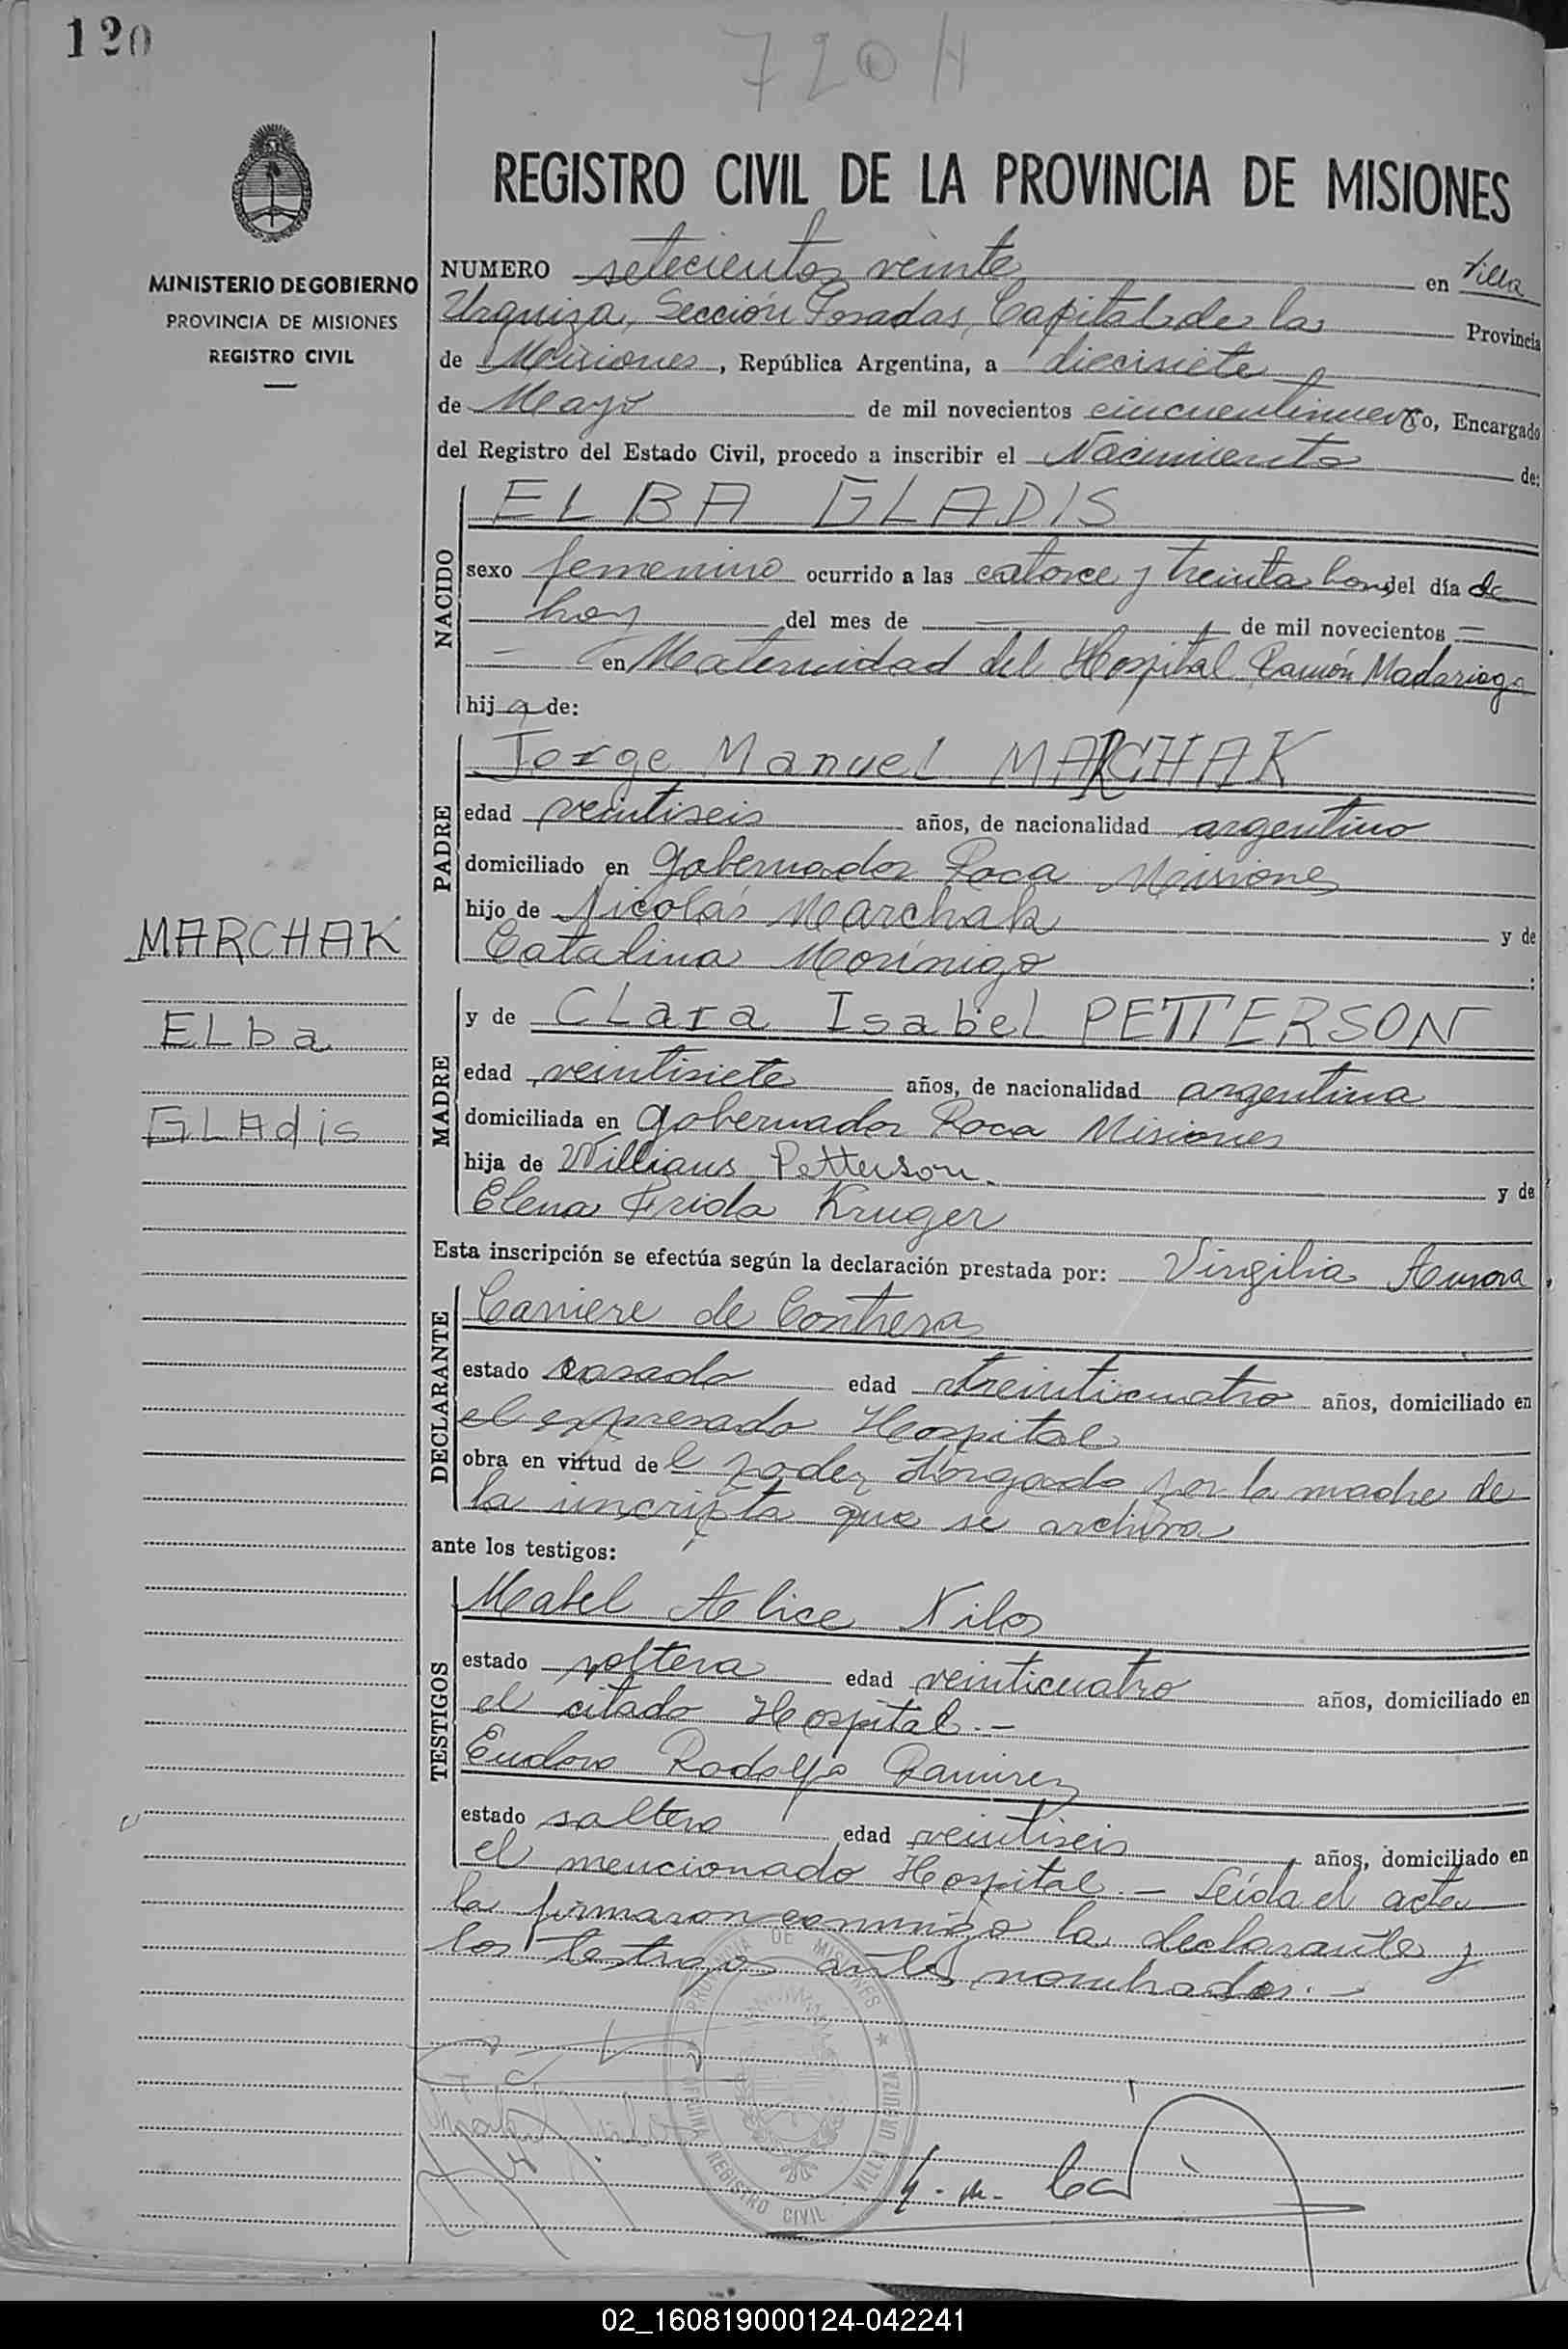 120
720 H
REGISTRO CIVIL DE LA PROVINCIA DE MISIONES
MINISTERIO DE GOBIERNO
PROVINCIA DE MISIONES
REGISTRO CIVIL
NUMERO setecientos veinte en Villa
Urquiza, Sección Posadas, Capital de la Provincia
de Misiones, República Argentina, a diecisiete
de Mayo de mil novecientos cincuentinueve yo, Encargado
del Registro del Estado Civil, procedo a inscribir el Nacimiento de:
NACIDO
ELBA GLADIS
sexo femenino ocurrido a las catorce y treinta horas del día de
hoy del mes de — de mil novecientos —
— en Maternidad del Hospital Ramón Madariaga
hija de:
PADRE
Jorge Manuel MARCHAK
edad veintiseis años, de nacionalidad argentino
domiciliado en Gobernador Roca Misiones
hijo de Nicolás Marchak y de
Catalina Morinigo :
MARCHAK
ELba
GLAdis
MADRE
y de CLara Isabel PETTERSON
edad veintisiete años, de nacionalidad argentina
domiciliada en Gobernador Roca Misiones
hija de Williams Petterson. y de
Elena Frida Kruger
Esta inscripción se efectúa según la declaración prestada por: Virgilia Aurora
DECLARANTE
Carriere de Contrera
estado casada edad treinticuatro años, domiciliado en
el expresado Hospital
obra en virtud del poder otorgado por la madre de
la inscripta que se archiva
ante los testigos:
TESTIGOS
Mabel Alice Nilos
estado soltera edad veinticuatro años, domiciliado en
el citado Hospital.—
Eudoro Rodolfo Ramirez
estado soltero edad veintiseis años, domiciliado en
el mencionado Hospital.— Leída el acta
la firmaron conmigo la declarante y
los testigos antes nombrados.—
PROVINCIA DE MISIONES ★
OFICINA REGISTRO CIVIL VILLA URQUIZA
02_160819000124-042241